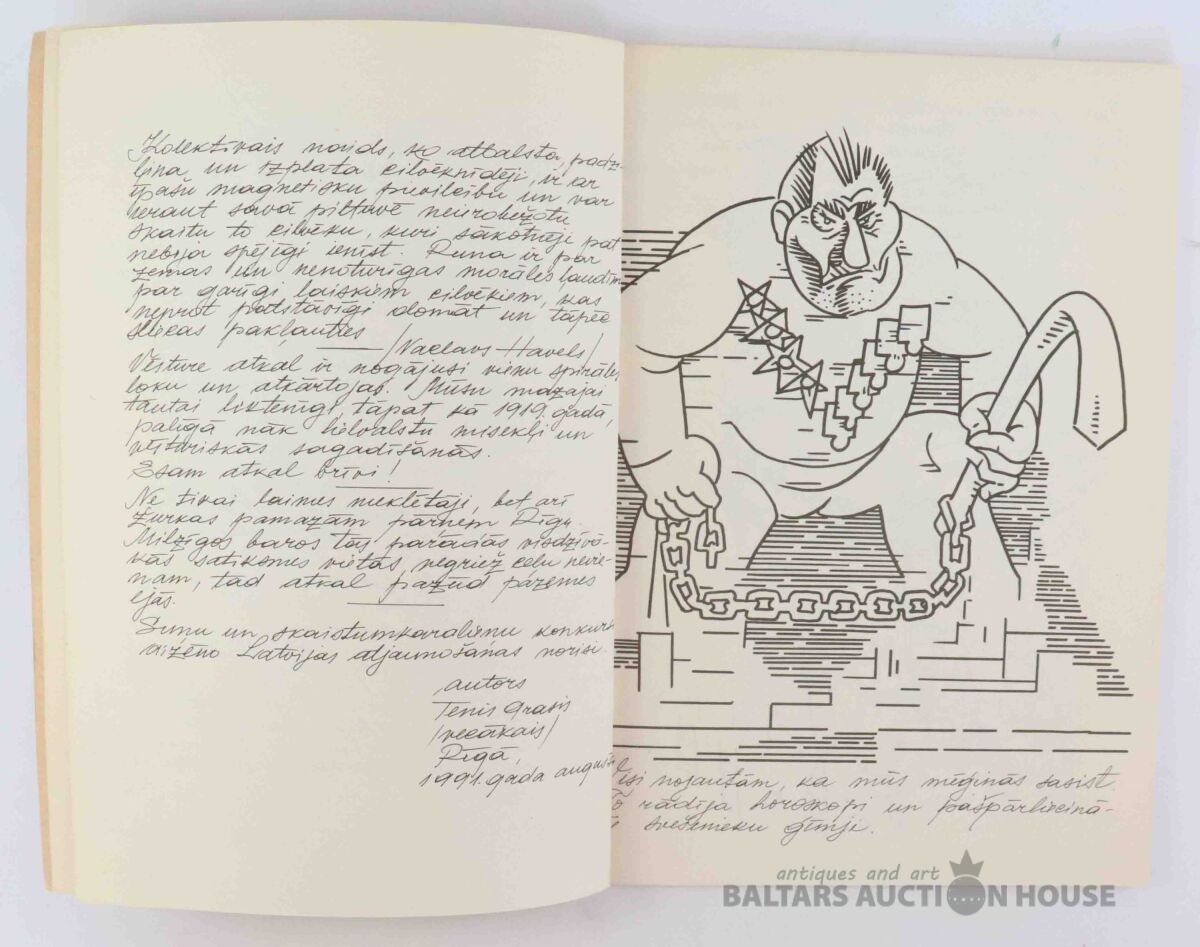 Kolektīvais naids, ko atbalsta, padzi-
ļina un izplata cilvēknīdēji, ir ar
īpašu magnētisku pievilcību un var
ieraut savā piltuvē neierobežotu
skaitu to cilvēku, kuri sākotnēji pat
nebija spējīgi ienīst. Runa ir par
zemas un nenoturīgas morāles ļaudīm
par garīgi laiskiem cilvēkiem, kas
neprot patstāvīgi domāt un tāpēc
sliecas pakļauties
/Vaclavs Havels/
Vēsture atkal ir nogājusi vienu spirāles
loku un atkārtojas. Mūsu mazajai
tautai liktenīgi, tāpat kā 1919. gadā,
palīgā nāk lielvalstu misekļi un
vēsturiskās sagadīšanās.
Esam atkal brīvi!
Ne tikai laimes meklētāji, bet arī
žurkas pamazām pārņem Rīgu.
Milzīgos baros tās parādās visdzīvā-
kās satiksmes vietās, negriež ceļu nevie-
nam, tad atkal pazūd pazemes
ejās.
Suņu un skaistumkaralieņu konkursi
aizēno Latvijas atjaunošanas norisi.
autors
Tenis Grasis
/vecākais/
Rīgā,
1991. gada augusts
Visi nojautām, ka mūs mēģinās sasist.
To rādīja horoskopi un pašpārliecinā-
svešinieku ģīmji.
antiques and art
BALTARS AUCTION HOUSE